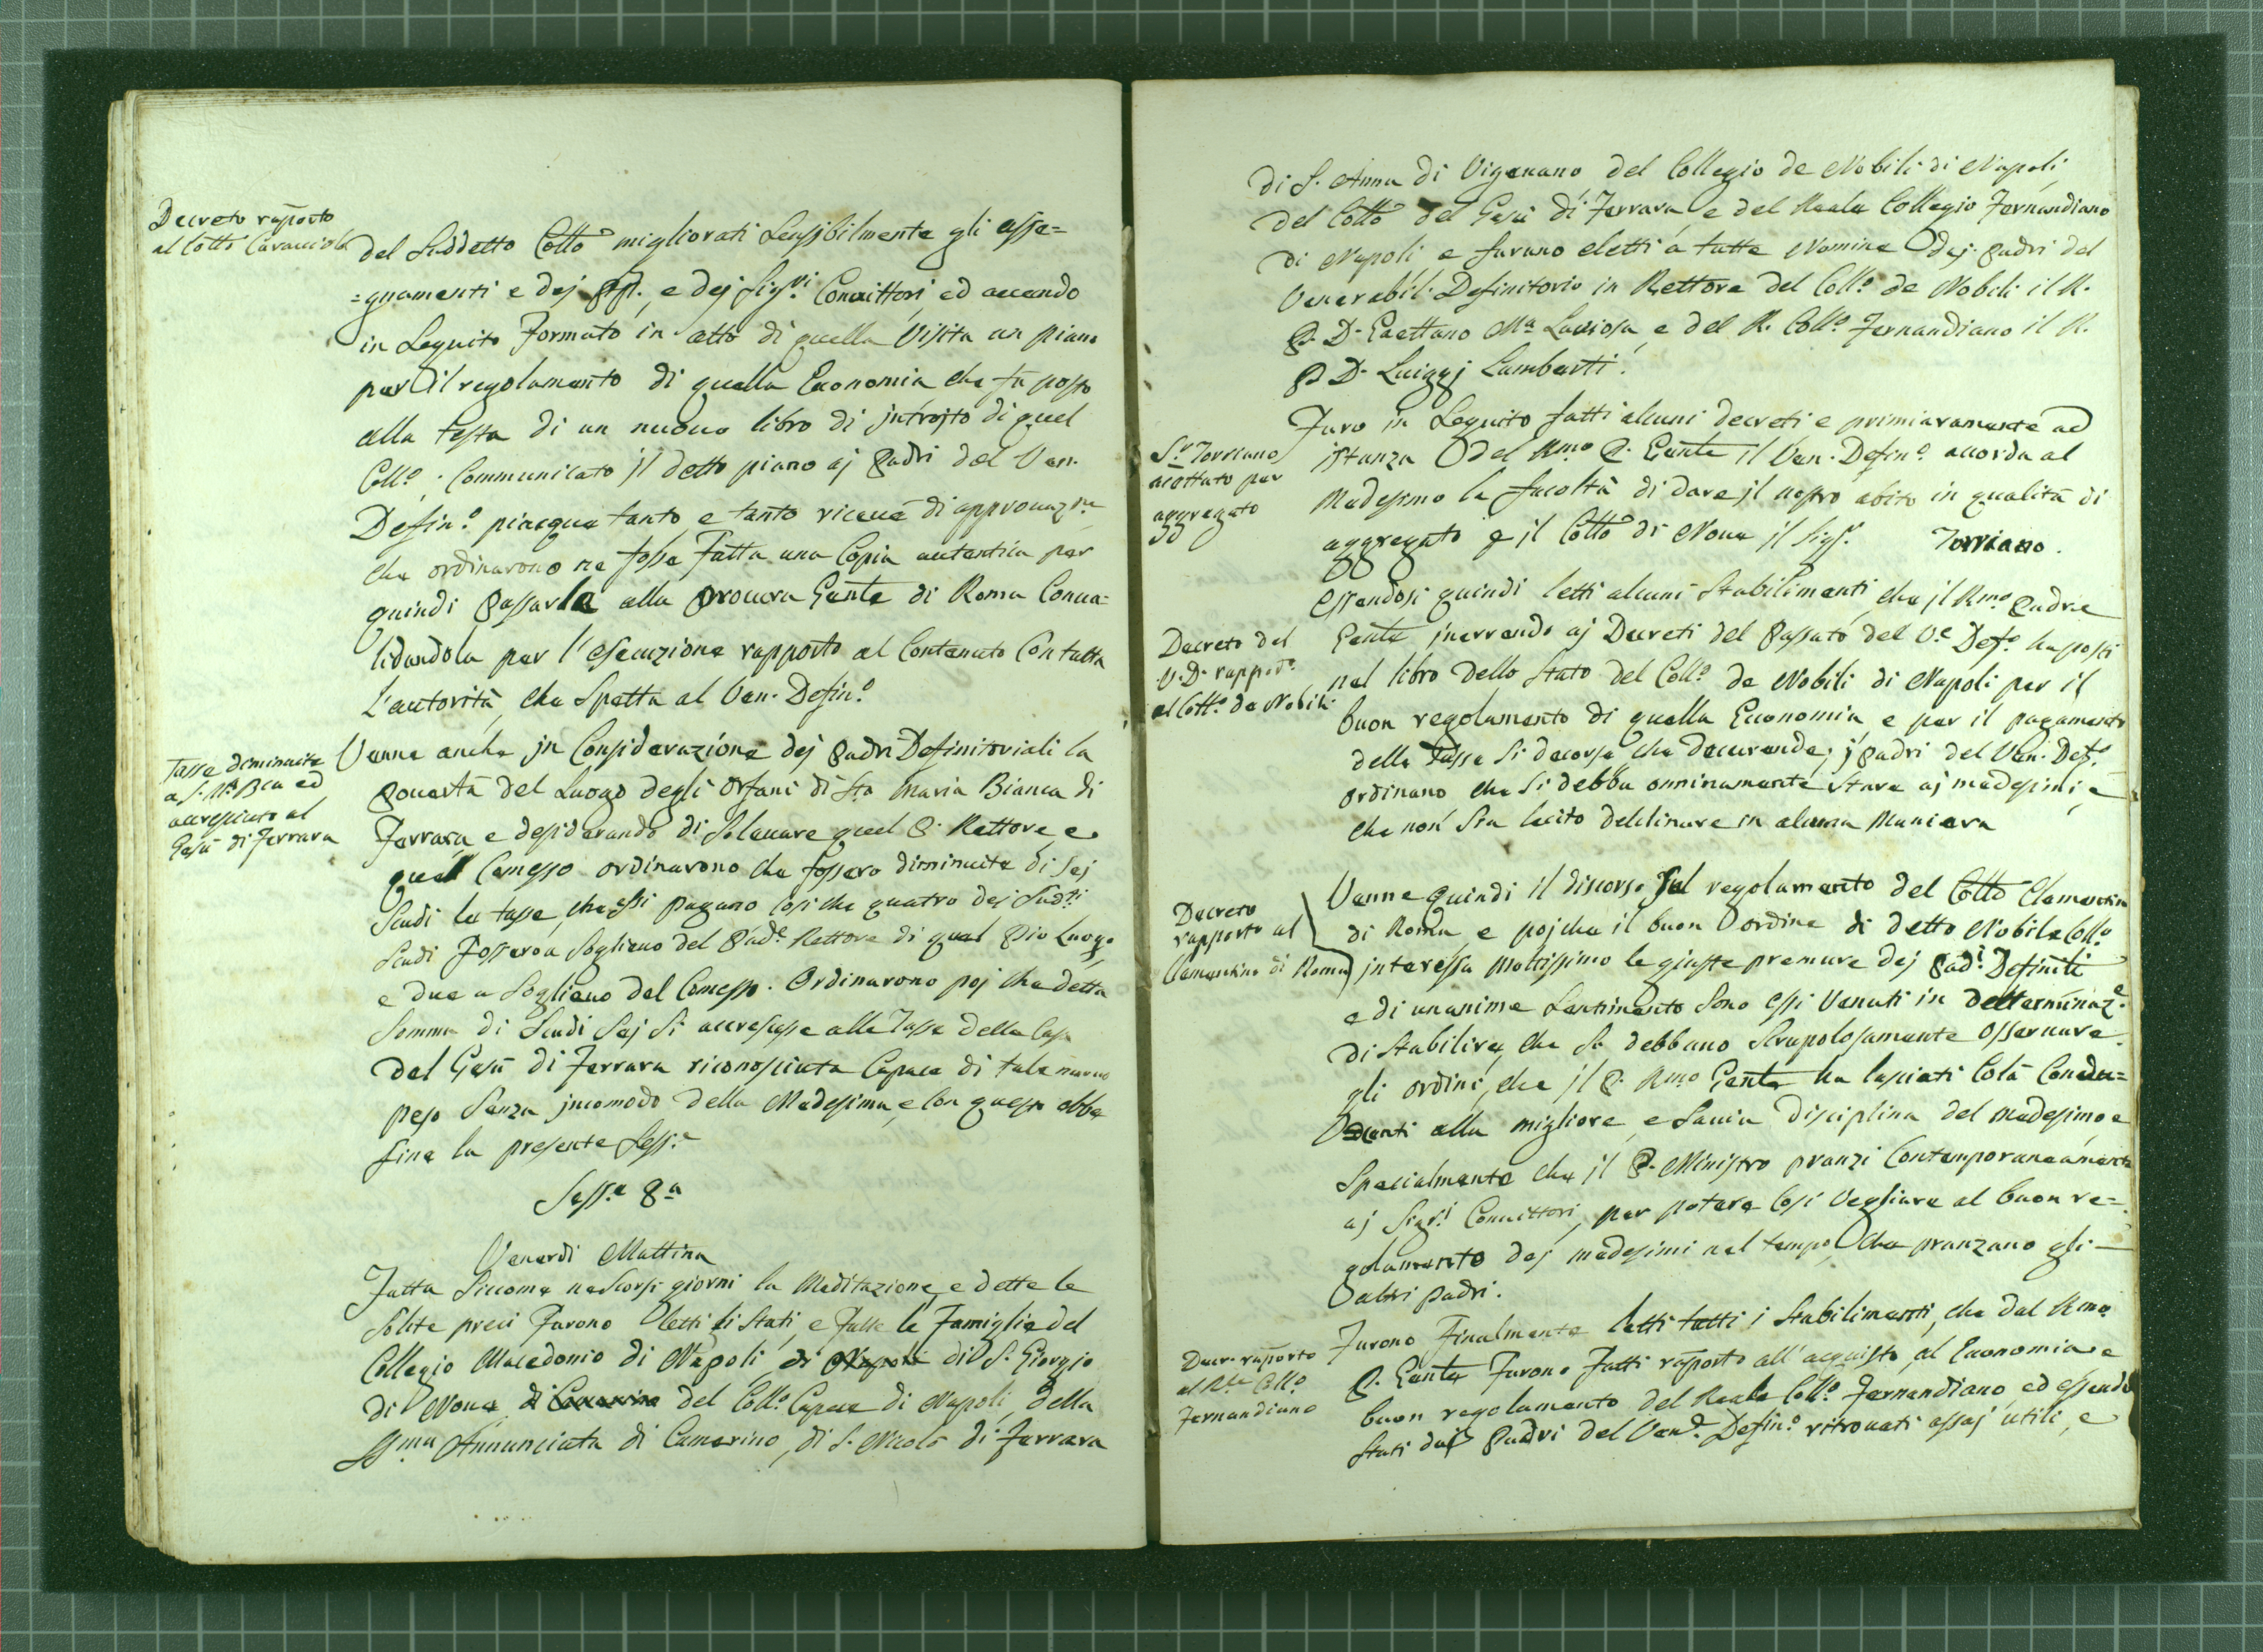 Decreto rapporto
al Collo Caracciolo
del Suddetto Collo migliorati Sensibilmente gli asse=
=gnamenti e dej PP. e dej Sigri. Convittori, ed avendo
in Seguito Formato in atto di quella Visita un piano
per il regolamento di quella Economia che fù posto
alla testa di un nuovo libro di jntrojto di quel
Collo. Communicato jl detto piano aj Padri del Ven.
Defino. piacque tanto, e tanto ricevè di approvazne
che ordinarono ne fosse Fatta una Copia autentica per
quindi Passarla alla Procura Genle di Roma Conva=
lidandola per l'esecuzione rapporto al Contenuto Con tutta
L'autorità, che Spetta al Ven. Defino.
Tasse diminuite
a S. Ma Bca ed
accresciute al
Gesù di Ferrara
Venne anche jn Considerazione dej Padri Definitoriali la
Povertà del Luogo degli Orfani di Sta Maria Bianca di
Ferrara, e desiderando di Solevare quel P. Rettore, e
quel Comesso ordinarono che fossero diminuite di Sej
Scudi le tasse, che essi pagano Cosi che quatro dej Sudti
Scudi Fossero a Soglievo del Pade Rettore di quel Pio Luogo,
e due a Soglievo del Comesso. Ordinarono poj che detta
Somma di Scudi Sej Si accrescesse alle Tasse della Casa
del Gesù di Ferrara riconosciuta Capace di tale nuovo
peso Senza jncomodo della Medesima, e Con questo ebbe
fine la presente Sesse
Sesse 8a
Venerdì Mattina
Fatta Siccome ne Scorsi giorni la Meditazione, e dette le
Solite preci Furono letti li Stati, e Fatte le Famiglie del
Collegio Macedonio di Napoli, di Napoli di S. Giorgio
di Nove, di Camerino del Collo Capece di Napoli, della
SSma Annunciata di Camerino, di S. Nicolò di Ferrara
di S. Anna di Vigevano del Collegio de Nobili di Napoli,
del Collo del Gesù di Ferrara, e del Reale Collegio Fernandiano
di Napoli e furono eletti a tutte Nomine dej Padri del
Venerabil: Definitorio in Rettore del Collo. de Nobili il R.
P. D. Gaettano Ma Laviosa, e del R. Collo Fernandiano il R.
P. D. Luiggj Lamberti.
Sr. Torriano
acettato per
aggregato
Furo in Seguito fatti alcuni decreti e primieramente ad
istanza del Rmo P. Genle il Ven. Defino. accorda al
Medesimo la facoltà di dare jl nostro abito in qualità di
aggregato p il Collo di Nove jl Sigr. Torriano.
Decreto del
V. D. rappto.
al Collo. de Nobili
Essendosi quindi letti alcuni Stabilimenti, che jl Rmo Padre
Genle jnerendo aj Decreti del Passato del Ve Defo. ha posti
nel libro dello Stato del Collo de Nobili di Napoli per il
buon regolamento di quella Economia, e per il pagamento
delle Tasse Si decorse che decurende; j Padri del Ven. Defo.
ordinano che Si debba onninamente Stare aj medesimi, e
che non Sia lecito declinare in alcuna Maniera
Decreto
rapporto al
Clementino di Roma
Venne quindi il discorso Sul regolamento del Collo Clementino
di Roma, e poj che il buon ordine di detto Nobile Collo
jnteressa moltissimo le giuste premure dej Padi. Definiti
e di unanime Sentimento Sono essi Venuti in determinaze.
di Stabilire, che Si debbano Scrupolosamente Osservare
gli ordini, che jl P. Rmo Genle ha lasciati Colà Condu=
centi alla migliore, e Savia Disciplina del medesimo, e
Specialmente che jl P. Ministro pranzi Contemporaneamente
aj Sigri Convittori, per potere Cosi Vegliare al buon re=
golamento dej medesimi nel tempo, che pranzano gli
altri Padri.
Decr. rapporto
al Rle Collo
Fernandiano
Furono Finalmente letti tutti i Stabilimenti, che dal Rmo
P. Genle Furono Fatti raporto all'acquisto, al Economia, e
buon regolamento del Reale Collo. Fernandiano, ed essendo
Stati daj Padri del Vene. Defino. ritrovati assaj utili, e